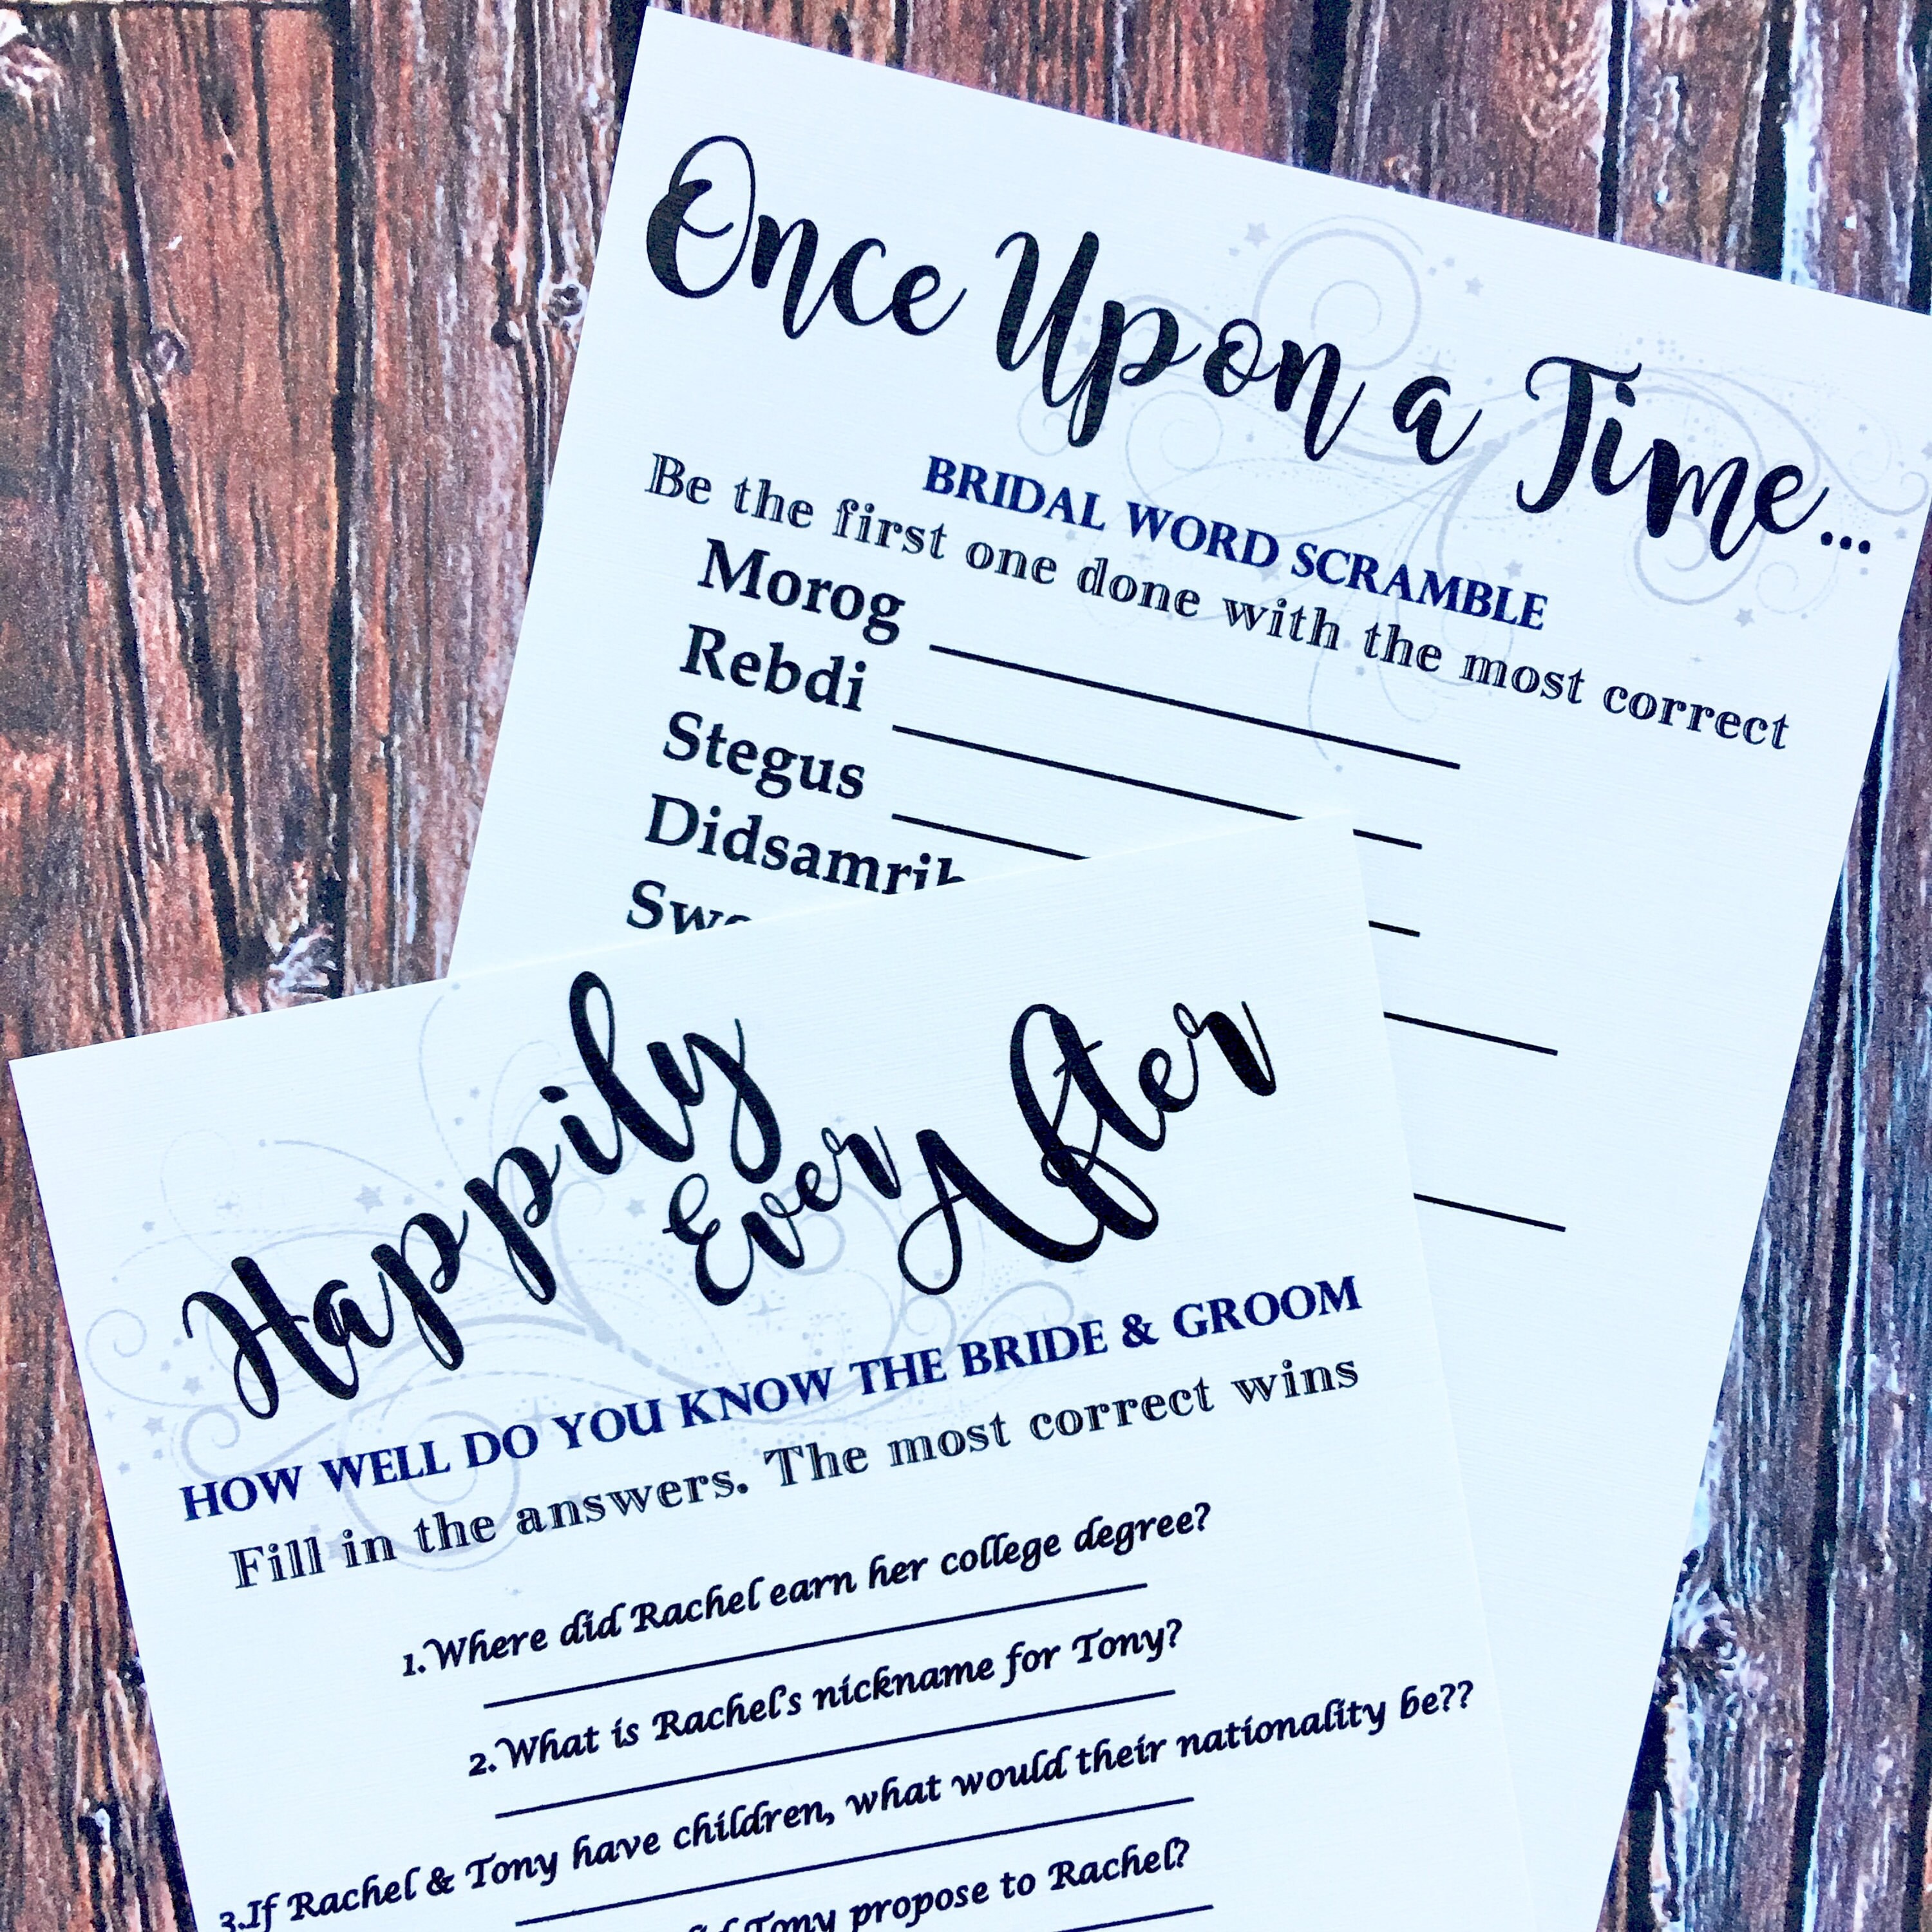 Once Upon a Time...
BRIDAL WORD SCRAMBLE
Be the first one done with the most correct
Morog
Rebdi
Stegus
Happily
Ever After
HOW WELL DO YOU KNOW THE BRIDE & GROOM
Fill in the answers. The most correct wins
1.Where did Rachel earn her college degree?
2.What is Rachel's nickname for Tony?
3.If Rachel & Tony have children, what would their nationality be??
Tony propose to Rachel?